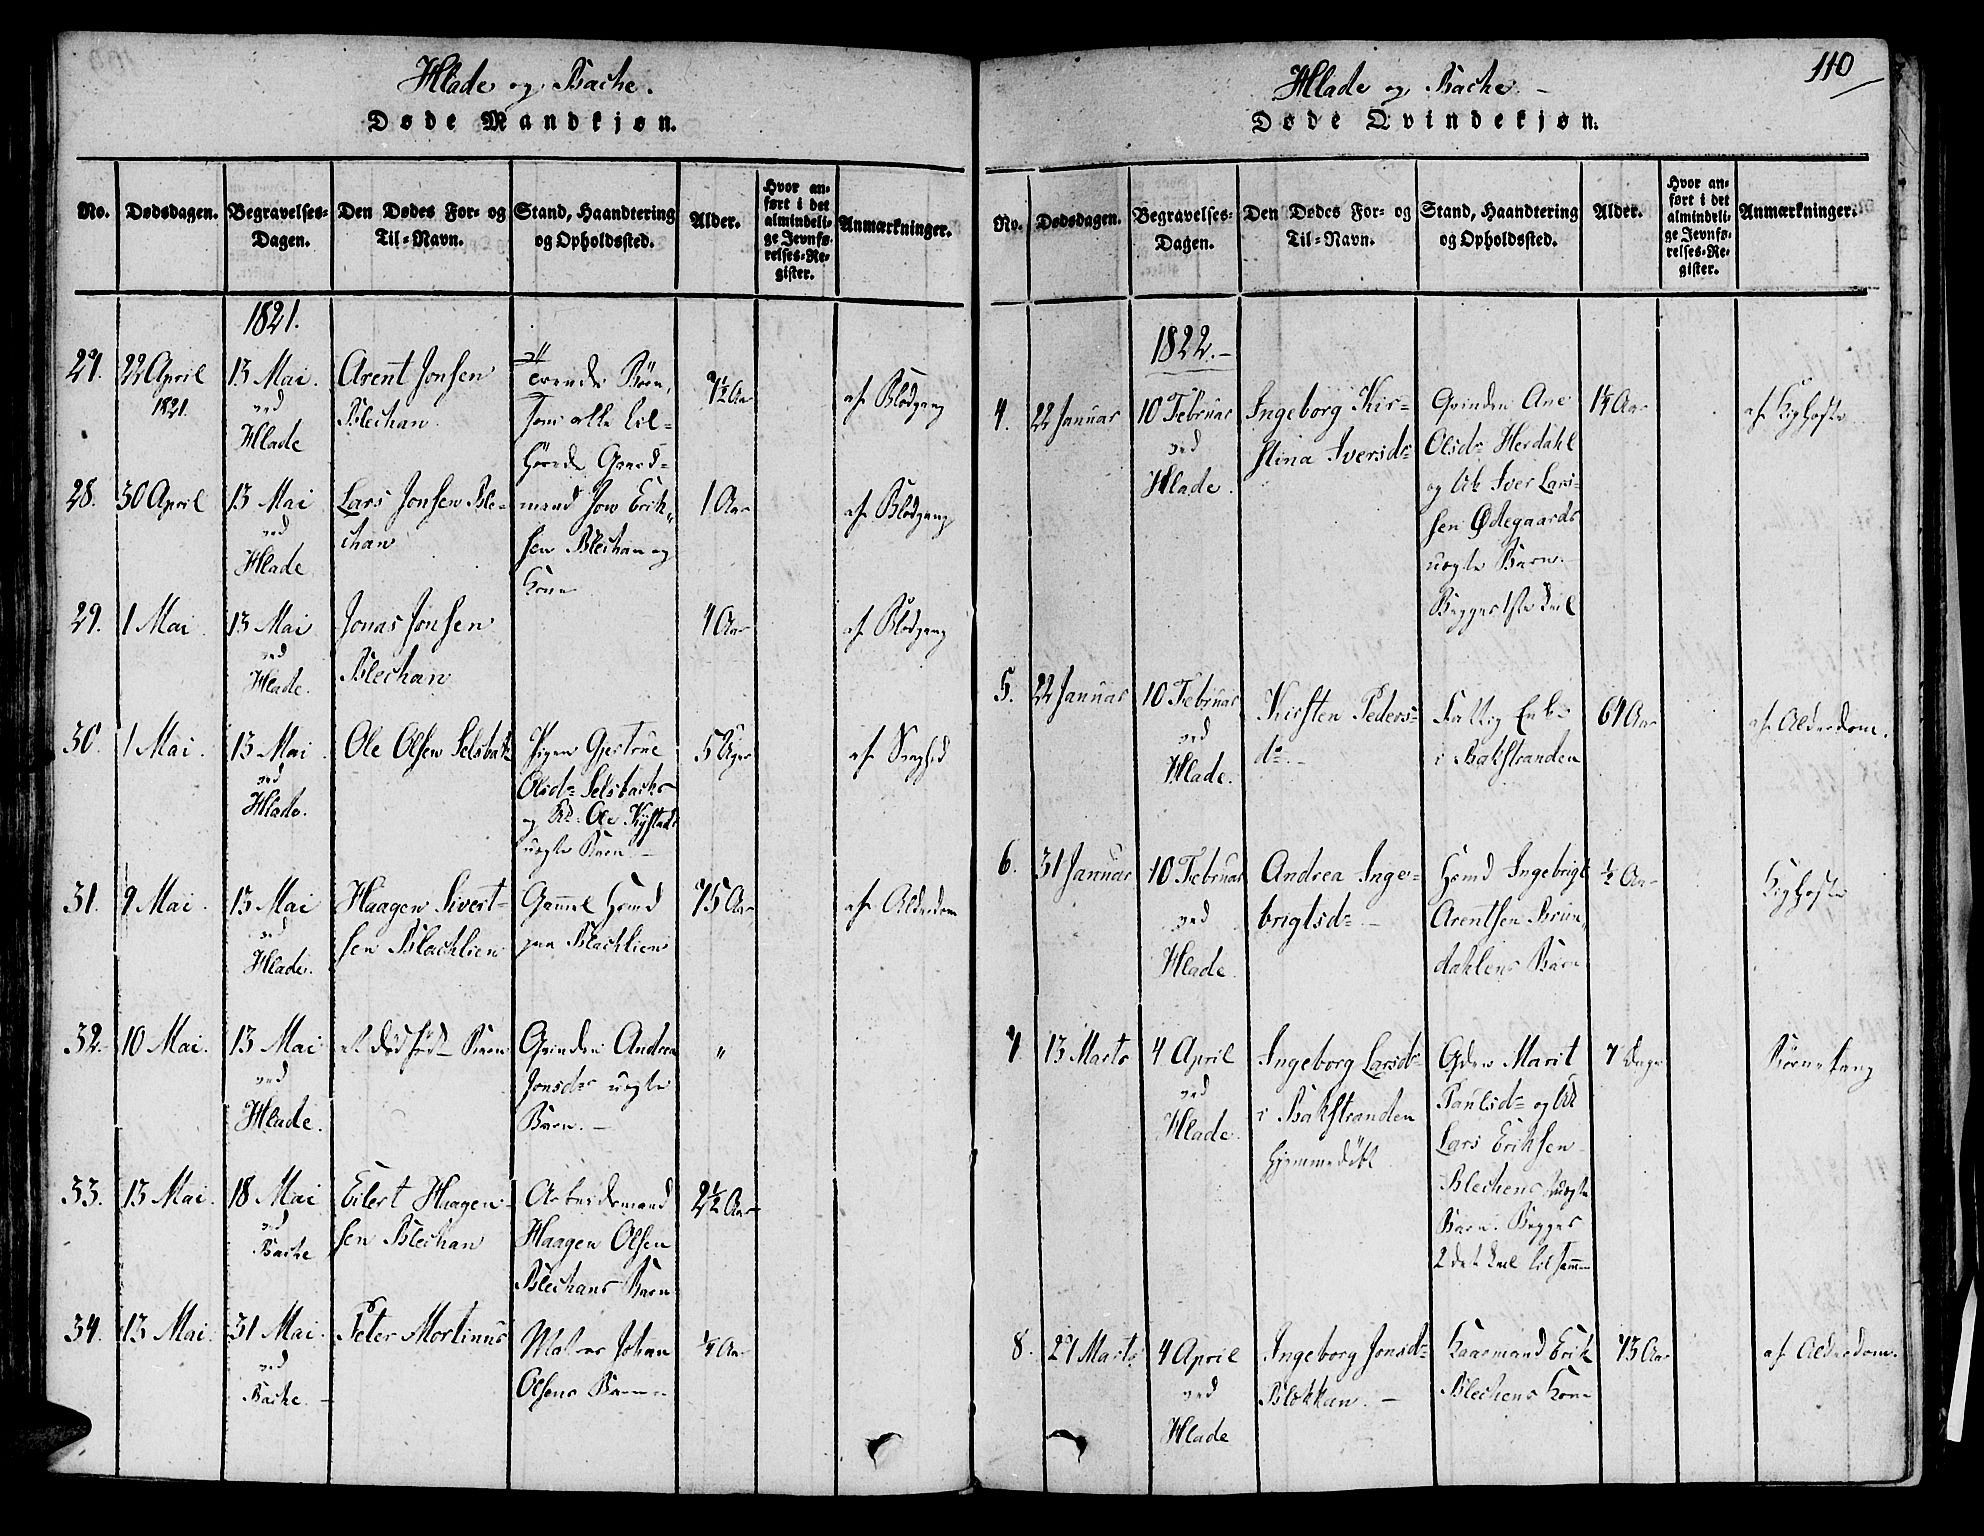 Hlade og Bache.
Døde Mandkjøn.
No.
Dødsdagen.
Begravelses-
Dagen.
Den Dødes For- og
Til-Navn.
Stand, Haandtering
og Opholdssted.
Alder.
Hvor an-
ført i det
almindeli-
ge Jevnfø-
relses-Re-
gister.
Anmærkninger.
1821.
27.
22 April
1821.
13 Mai.
ved
Hlade
Arent Jonsen
Blechan.
Børn,
som alle til-
hørende Gaard-
mand Jon Erik-
sen Blechan og
Kone
7½ Aar
af Blodgang
28.
30 April
13 Mai
ved
Hlade
Lars Jonsen Ble-
chan
1 Aar
af Blodgang
29.
1 Mai.
13 Mai
ved
Hlade.
Jonas Jonsen
Blechan
4 Aar
af Blodgang
30.
1 Mai.
13 Mai
ved
Hlade.
Ole Olsen Selsbak
Pigen Gjertrue
Olsd. Selsbachs
og Ole Kystads
uægte Barn.
5 Uger
af Svaghed
31.
9 Mai.
13 Mai
ved
Hlade.
Haagen Sivert-
sen Blachlien
Gammel Husmd
paa Blachlien
75 Aar
af Alderdom
32.
10 Mai.
13 Mai
ved
Hlade.
et dødfødt Barn
Qvinden Andrea
Jonsd. uægte
Barn.
"
33.
13 Mai.
18 Mai
ved
Bache
Eilert Haagen-
sen Blechan
Arbeidsmand
Haagen Olsen
Blechans Barn
2½ Aar
34.
13 Mai.
31 Mai.
ved
Bache.
Peter Mortinus
Johan
Olsens Barn
¼ Aar
110
Hlade og Bache.
Døde Qvindekjøn.
No.
Dødsdagen.
Begravelses-
Dagen.
Den Dødes For- og
Til-Navn.
Stand, Haandtering
og Opholdssted.
Alder.
Hvor an-
ført i det
almindeli-
ge Jevnfø-
relses-Re-
gister.
Anmærkninger.
1822.
4.
22 Januar
10 Februar
ved
Hlade.
Ingeborg Kir-
stina Iversd.
Qvinden Ane
Olsd. Herdahl
og Uk Iver Lars-
sen Ødegaards
uægte Barn.
Begges 1ste Feil
1¼ Aar
af Kighoste
5.
22 Januar
10 Februar
ved
Hlade.
Kirsten Peders-
d.
Fattig Enke
i Bakstranden
64 Aar
af Alderdom.
6.
31 Januar
10 Februar
ved
Hlade.
Andrea Inge-
brigtsd.
Husmd Ingebrigt
Arentsen Brun-
dahlens Barn
½ Aar
Kighoste
7.
13 Marts
4 April
ved
Hlade.
Ingeborg Larsd.
i Bakstranden
hjemmedøbt
Marit
Paulsd. og Uk
Lars Eriksen
Blechens uægte
Barn. Begges
2det Feil tilsammen
7 Dage
Børnetang
8.
27 Marts
4 April
ved
Hlade
Ingeborg Jonsd.
Blokkan.
Kaarmand Erik
Blechens Kone
73 Aar
af Alderdom.